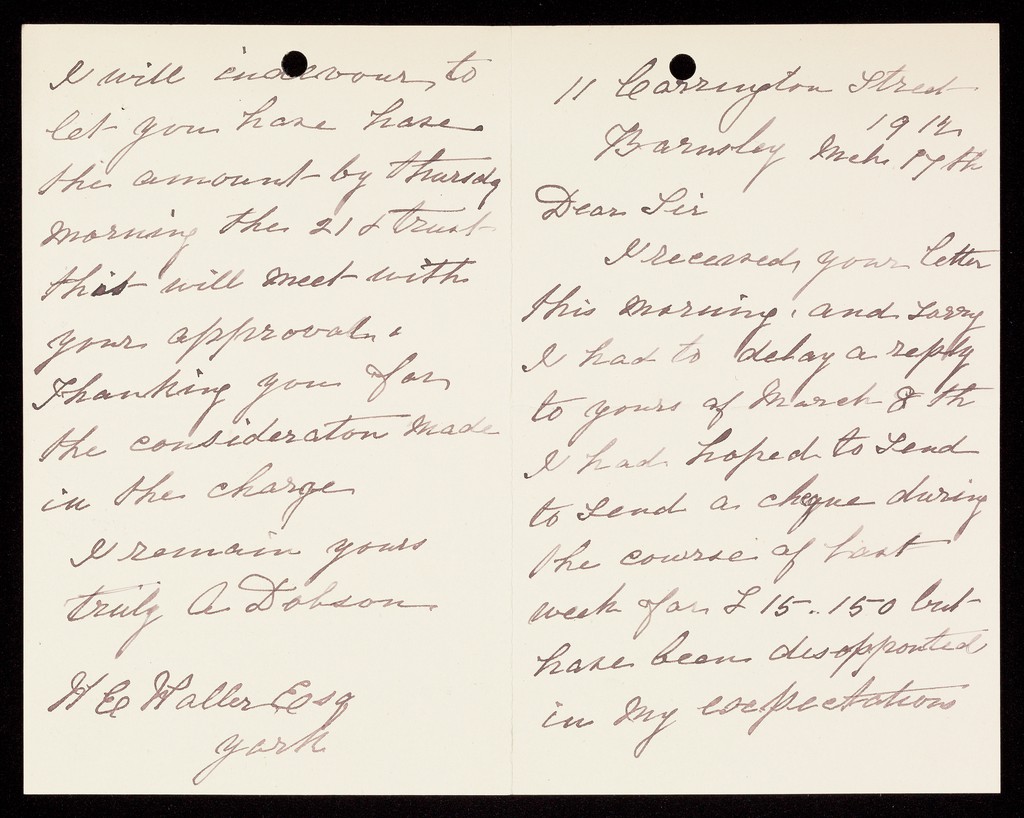 11 Carrington Street
1912
Barnsley Mch 17th
Dear Sir
I received your letter
this morning, and sorry
I had to delay a reply
to yours of March 8th
I had hoped to send
to send a cheque during
the course of last
week for £15..15.0 but
have been disapponted
in my expectations
I will indevour to
let you have have
the amount by thursday
morning the 21st trust
this will meet with
your approval.
Thanking you for
the consideraton made
in the charge
I remain yours
truly A Dobson
W E Waller Esq
york